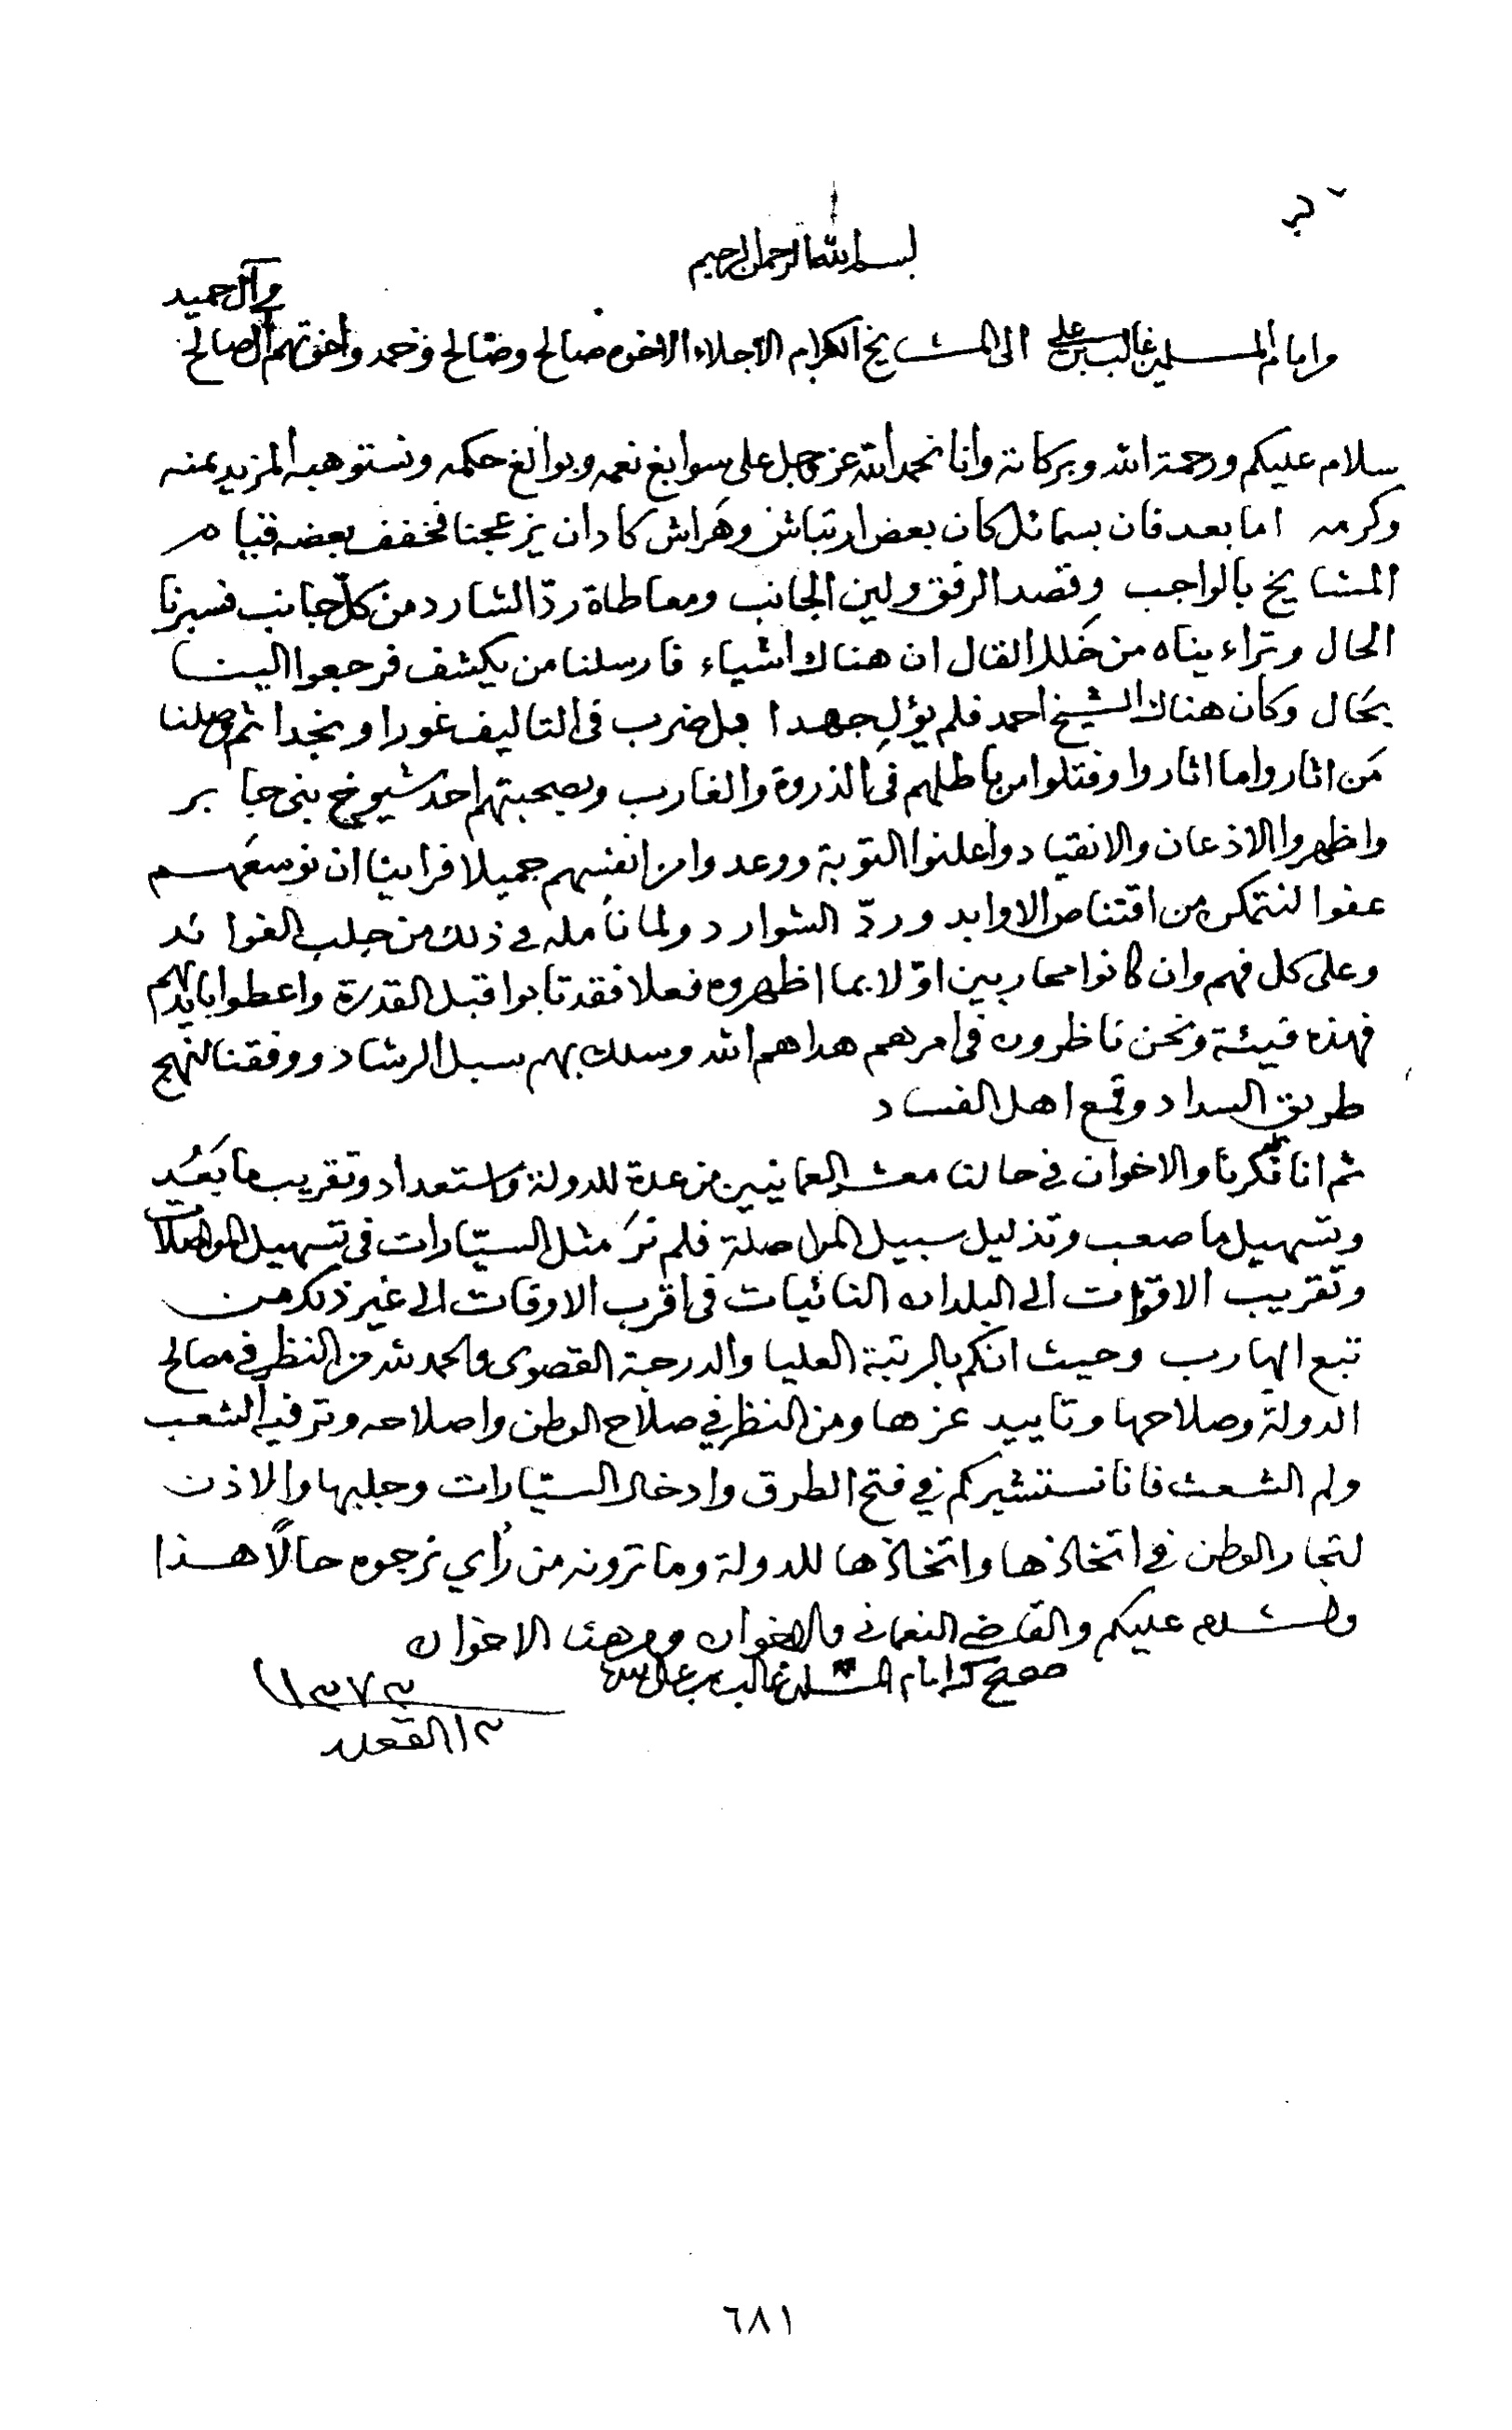 بسم الله الرحمن الرحيم
وآل حميد
من امام المسلمين غالب بن علي الى المشايخ الكرام الأجلاء الاخوه صالح وصالح وحمد واخوتهم آل صالح
سلام عليكم ورحمة الله وبركاته وانا نحمد الله عز وجل على سوابغ نعمه وبوالغ حكمه ونستوهبه المزيد بمنه
وكرمه اما بعد فان بسمائل كان بعض ارتباش وهراش كاد ان يزعجنا فخفف بعضه قيام
المشايخ بالواجب وقصد الرفق ولين الجانب ومعاطاة ردّ الشارد من كلّ جانب فسبرنا
الحال وتراءيناه من خَلل القال ان هناك اشياء فارسلنا من يكشف فرجعوا الينا
بحال وكان هناك الشيخ احمد فلم يؤل جهدا بل ضرب فى التاليف غورا ونجدا ثم وصلنا
مَن اثاروا ما اثاروا وفتلوا من باطلهم فى الذروة والغارب وبصحبتهم احد شيوخ بنى جابر
واظهروا الاذعان والانقياد واعلنوا التوبة ووعدوا من انفسهم جميلا فراينا ان نوسعهم
عفوا لنتمكن من اقتناص الاوابد وردّ الشوارد ولما نأمله في ذلك من جلب الفوائد
وعلى كل فهم وان كانوا محاربين اوّلا بما اظهروه فعلا فقد تابوا قبل القدرة واعطوا بايديهم
فهذه فيئة ونحن ناظرون فى امرهم هداهم الله وسلك بهم سبل الرشاد ووفقنا لنهج
طريق السداد وقمع اهل الفساد
ثم انا فكرنا والاخوان في حالنا معشر العمانيين من عدة للدولة واستعداد وتقريب ما بَعُد
وتسهيل ما صعب وتذليل سبيل المواصلة فلم نرَ مثل السيّارات فى تسهيل المواصلات
وتقريب الاقوات الى البلدان النائيات فى اقرب الاوقات الى غير ذلك من
تبع الهارب وحيث انكم بالرتبة العليا والدرجة القصوى والحمد لله من النظر في مصالح
الدولة وصلاحها وتاييد عزها ومن النظر في صلاح الوطن واصلاحه وترفيه الشعب
ولم الشعث فانا نستشيركم في فتح الطرق وادخال السيّارات وجلبها والاذن
لتجار الوطن في اتخاذها واتخاذها للدولة وما ترونه من رأي نرجوه حالًا هذا
والسلام عليكم والقاضي النعمانى والاخوان ومن هنا الاخوان
صحيح كتبه امام المسلمين غالب بن علي بيده
١٣٧٣
١٣ القعده
٦٨١